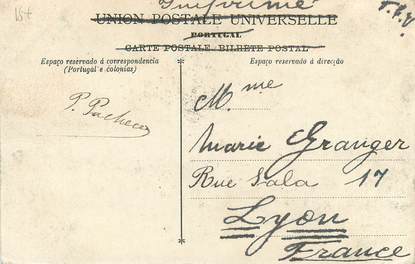 Imprimé
15+
T.P.V.
UNION POSTALE UNIVERSELLE
PORTUGAL
CARTE POSTALE. BILHETE POSTAL
Espaço reservado á correspondencia
(Portugal e colonias)
Espaço reservado á direcção
P. Pacheco
M.me
Marie Granger
Rue Sala 17
Lyon
France